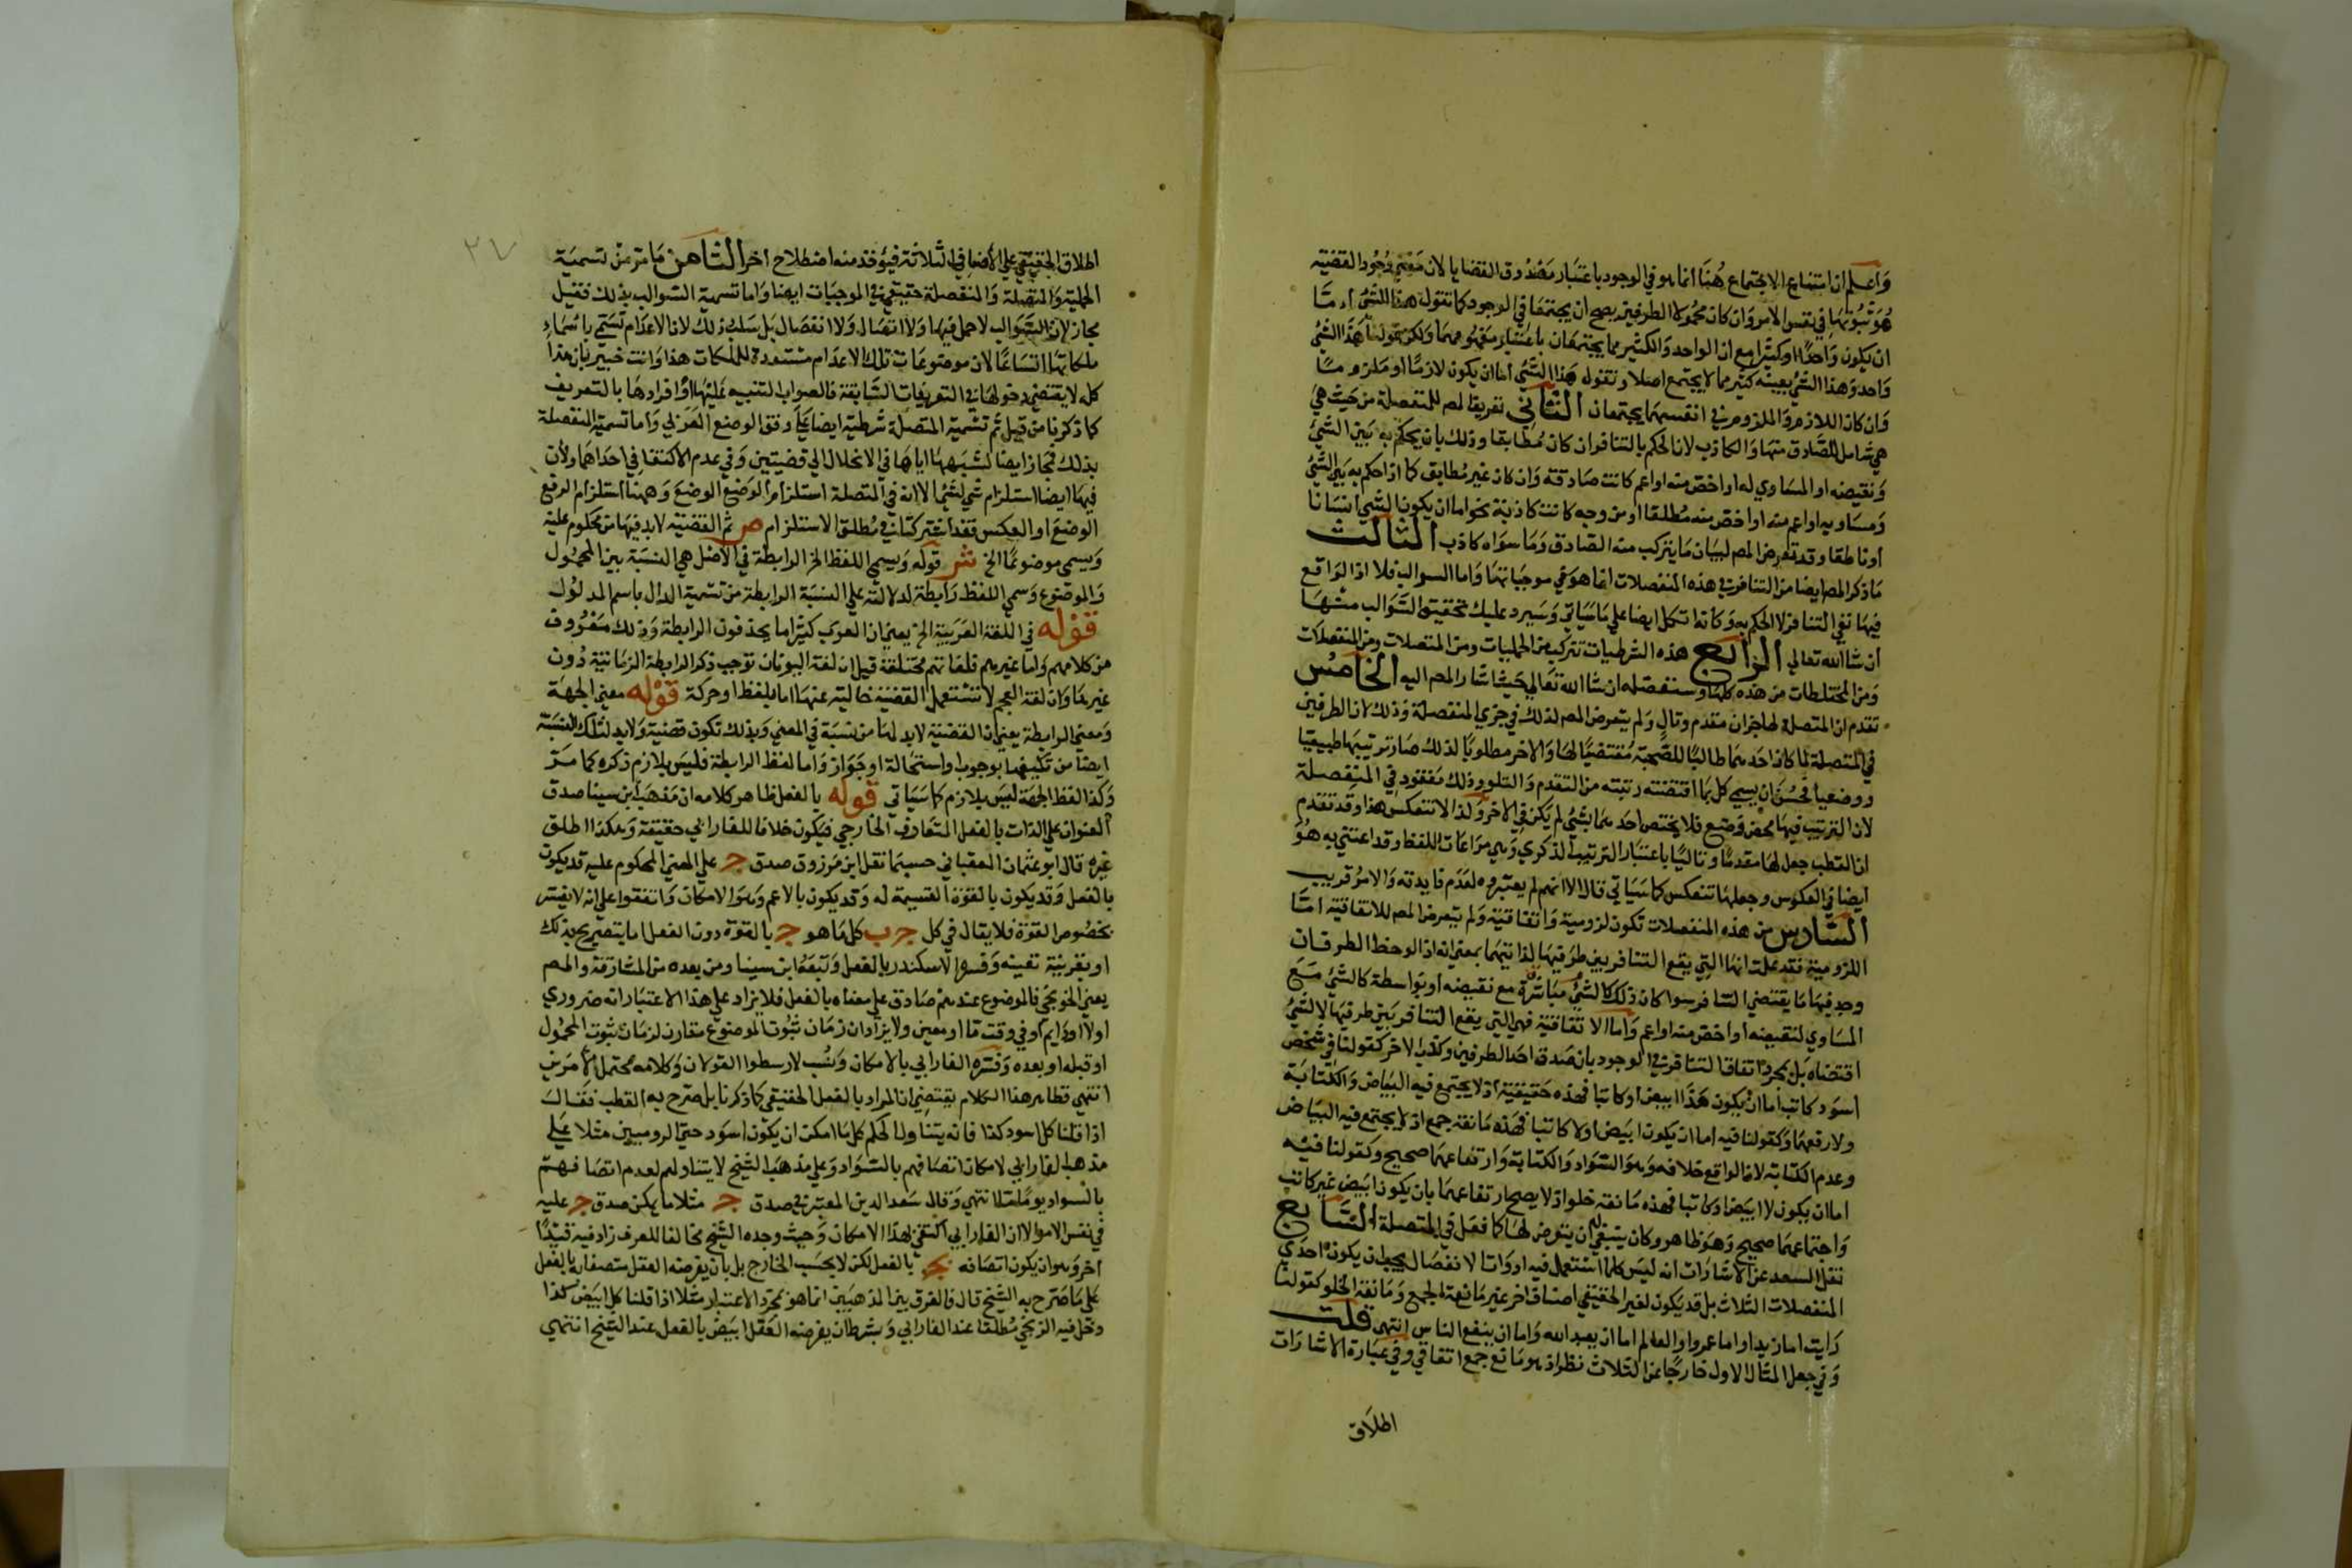 واعلم ان امتناع الاجتماع هنا انما هو في الوجود باعتبار مصدوق القضايا لان معني وجود القضية
هو ثبوتها في نفس الامر وان كان محمولا الطرفين يصح ان يجتمعا في الوجود كما تقول هذا الشئ اما
ان يكون واحدا او كثيرا مع ان الواحد والكثير مما يجتمعان باعتبار مفهومهما ولكن قولنا هذا الشئ
واحد وهذا الشئ بعينه كثير مما لا يجتمع اصلا وتقول هذا الشئ اما ان يكون لازما او ملزوما
وان كان اللازم والملزوم في انفسهما يجتمعان الثاني تعريف المص للمنفصلة من حيث هي
هي شامل للصادق منها والكاذب لان الحكم بالتنافر ان كان مطابقا وذلك بان يحكم به بين الشئ
ونقيضه او المساوي له او اخص منه او اعم كانت صادقة وان كان غير مطابق كما اذا حكم به بين الشئ
ومساويه او اعم منه او اخص منه مطلقا او من وجه كانت كاذبة نحو اما ان يكون الشئ انسانا
او ناطقا وقد تعرض المص لبيان ما يتركب منه الصادق وما سواه كاذب الثالث
ما ذكر المص ايضا من التنافر في هذه المنفصلات انما هو في موجباتها واما السوالب فلا اذ الواقع
فيها نفي التنافر لا الحكم به وكانه اتكل ايضا على ما سياتي وسيرد عليك تحقيق السوالب منها
ان شا الله تعالي الرابع هذه الشرطيات تتركب من الحمليات ومن المتصلات ومن المنفصلات
ومن المختلطات من هذه كلها وسنفصله ان شا الله تعالي حيث اشار المص اليه الخامس
تقدم ان المتصلة لها جزان مقدم وتال ولم يتعرض المص لذلك في جزي المنفصلة وذلك لان الطرفين
في المتصلة لما كان احدهما طالبا للصحبة مقتضيا لها والاخر مطلوبا لذلك صار ترتيبها طبيعيا
ووضعيا فحسن ان يسمي كل بما اقتضته رتبته من التقدم والتلو وذلك مفقود في المنفصلة
لان الترتيب فيها محض وضع فلا يختص احدهما بشئ لم يكن في الاخر ولذا لا تنعكس هذا وقد تقدم
ان القطب جعل لها مقدما وتاليا باعتبار الترتيب الذكري وهي مراعات اللفظ وقد اعتني به هو
ايضا في العكوس وجعلها تنعكس كما سياتي قال الا انهم لم يعتبروه لعدم فايدته والامر قريب
السادس من هذه المنفصلات تكون لزومية واتفاقية ولم يتعرض المص للاتفاقية اما
اللزومية فقد علمت انها التي يقع التنافر بين طرفيها لذاتيهما بمعني انه اذا لوحظ الطرفان
وجد فيهما ما يقتضي التنافر سوا كان ذلك كالشئ مباشرة مع نقيضه او بواسطة كالشئ مع
المساوي لنقيضه او اخص منه او اعم واما الاتفاقية فهي التي يقع التنافر بين طرفيها لا لشئ
اقتضاه بل بمجرد اتفاق التنافر في الوجود بان صدق احد الطرفين وكذب الاخر كقولنا في شخص
اسود كاتب اما ان يكون هذا ابيض او كاتبا فهذه حقيقية اذ لا يجتمع فيه البياض والكتابة
ولا رفعهما وكقولنا فيه اما ان يكون ابيض او لا كاتبا فهذه مانعة جمع اذ لا يجتمع فيه البياض
وعدم الكتابة لان الواقع خلافه وهو السواد والكتابة وارتفاعهما صحيح وكقولنا فيه
اما ان يكون لا ابيض او كاتبا فهذه مانعة خلو اذ لا يصح ارتفاعهما بان يكون ابيض غير كاتب
واجتماعهما صحيح وهو ظاهر وكان ينبغي ان يتعرض لها كما فعل في المتصلة السابع
نقل السعد عن الاشارات انه ليس كلما استعمل فيه ادوات الانفصال يجب ان يكون احدي
المنفصلات الثلاث بل قد يكون لغير الحقيقي اصناف اخر غير مانعة الجمع ومانعة الخلو كقولنا
رايت اما زيدا واما عمروا والعالم اما ان يعبد الله واما ان ينفع الناس انتهي قلت
وفي جعل المثال الاول خارجا عن الثلاث نظر اذ هو مانع جمع اتفاقي وفي عبارة الاشارات
اطلاق
٢٧
اطلاق الحقيقي علي الاضافي الثلاثة فيؤخذ منه اصطلاح اخر الثامن ما مر من تسمية
الحملية والمتصلة والمنفصلة حقيقة في الموجبات ايضا واما تسمية السوالب بذلك فقيل
مجاز لان السوالب لا حمل فيها ولا اتصال ولا انفصال بل سلب ذلك لان الاعدام تسمي باسماء
ملكاتها اتساعا لان موضوعات تلك الاعدام مستعدة للملكات هذا وانت خبير بان هذا
كله لا يقتضي دخولها في التعريفات السابقة فالصواب التنبيه عليها او افرادها بالتعريف
كما ذكرنا من قبل ثم تسمية المتصلة شرطية ايضا علي وفق الوضع العربي واما تسمية المنفصلة
بذلك فمجاز ايضا لشبهها اياها في الانحلال الي قضيتين وفي عدم الاكتفا في احداهما ولان
فيها ايضا استلزام شئ لشئ الا انه في المتصلة استلزام الوضع الوضع وههنا استلزام الرفع
الوضع او العكس فقد اشتركتا في مطلق الاستلزام ص ثم القضية لا بد فيها من محكوم عليه
ويسمي موضوعا الخ ش قوله ويسمي اللفظ الخ الرابطة في الاصل هي النسبة بين المحمول
والموضوع وسمي اللفظ رابطة لدلالته علي النسبة الرابطة من تسمية الدال باسم المدلول
قوله في اللغة العربية الخ يعني ان العرب كثيرا ما يحذفون الرابطة وذلك معروف
من كلامهم واما غيرهم فلغاتهم مختلفة قيل ان لغة اليونان توجب ذكر الرابطة الزمانية دون
غيرها وان لغة العجم لا تستعمل القضية خالية عنها اما بلفظ او حركة قوله معني الجهة
ومعني الرابطة يعني ان القضية لا بد لها من نسبة في المعني وبذلك تكون قضية ولا بد لتلك النسبة
ايضا من تكيفها بوجوب او استحالة او جواز واما لفظ الرابطة فليس يلازم ذكره كما مر
وكذا لفظ الجهة ليس بلازم كما سياتي قوله بالفعل ظاهر كلامه ان مذهب ابن سينا صدق
العنوان علي الذات بالفعل المتعارف الخارجي فيكون خلافا للفارابي حقيقة وهكذا اطلق
غيره قال ابو عثمان العقباني حسبما نقل ابن مرزوق صدق ج علي المعني المحكوم عليه قد يكون
بالفعل وقد يكون بالقوة القسيمة له وقد يكون بالاعم وهو الامكان واتفقوا علي انه لا يفسر
بخصوص القوة فلا يقال في كل ج ب كل ما هو ج بالقوة دون الفعل اما بتصريح بذلك
او بقرينة تعينه وفسره الاسكندر بالفعل وتبعه ابن سينا ومن بعده من المشارقة والمص
يعني الخونجي فالموضوع عندهم صادق علي معناه بالفعل فلا يزاد علي هذا الاعتبار انه ضروري
اولا او دايم او في وقت ما او معين ولا يزاد ان زمان ثبوت الموضوع مقارن لزمان ثبوت المحمول
او قبله او بعده وفسره الفارابي بالامكان ونسب لارسطوا القولان وكلامه محتمل الامرين
انتهي فظاهر هذا الكلام يقتضي ان المراد بالفعل الحقيقي كما ذكرنا بل صرح به القطب فقال
اذا قلنا كل اسود كذا فانه يتناول الحكم كل ما امكن ان يكون اسود حتي الروميين مثلا علي
مذهب الفارابي لامكان اتصافهم بالسواد وعلي مذهب الشيخ لا يتناولهم لعدم اتصافهم
بالسواد يوما ما انتهي وقال سعد الدين المعتبر في صدق ج مثلا ما يمكن صدق ج عليه
في نفس الامر الا ان الفارابي اكتفي بهذا الامكان وحيث وجده الشيخ مخالفا للعرف زاد فيه قيدا
اخر وهو ان يكون اتصافه بج بالفعل لكن لا بحسب الخارج بل بان يفرضه العقل متصفا به بالفعل
علي ما صرح به الشيخ قال فالفرق بين المذهبين انما هو بمجرد الاعتبار مثلا اذا قلنا كل ابيض كذا
دخل فيه الزنجي مطلقا عند الفارابي وبشرط ان يفرضه العقل ابيض بالفعل عند الشيخ انتهي